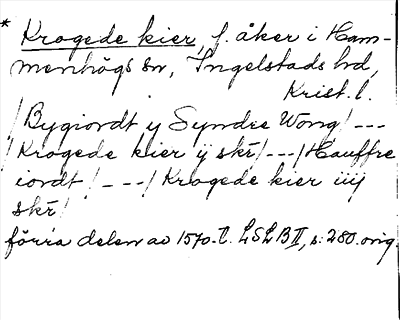 * Krogede kier, f. åker i Ham-
menhögs sn, Ingelstads hd,
Krist. l.
/Bygiordt y Syndre Wong/ ---
/Krogede kier ij skr/ --- /Hauffre
iordt/ --- /Krogede kier iiij
skr/
förra delen av 1570-t. LSLB II, s. 280. orig.